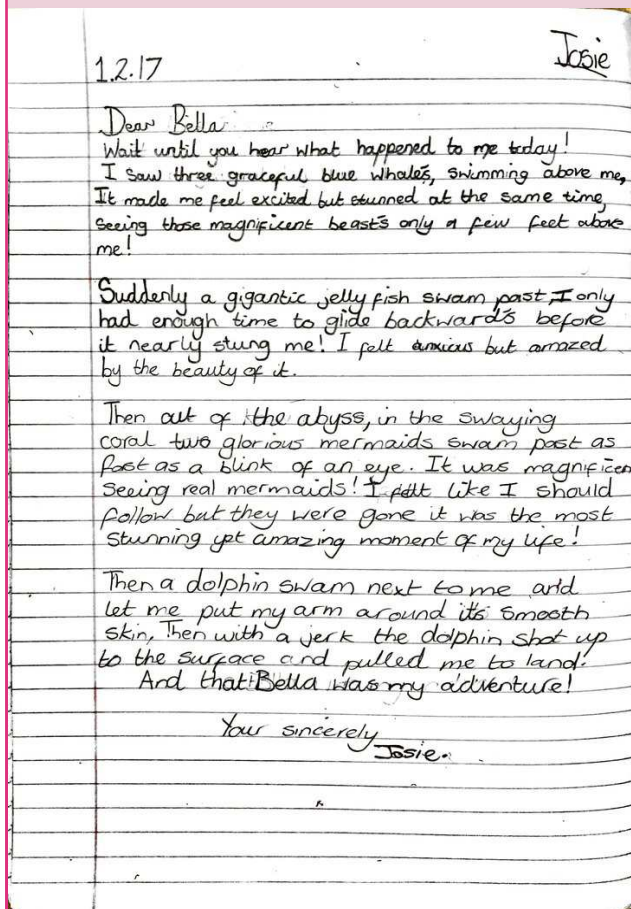 1.2.17
Josie
Dear Bella
Wait until you hear what happened to me today!
I saw three graceful blue whales, swimming above me,
It made me feel excited but stunned at the same time,
seeing those magnificent beasts only a few feet above
me!
Suddenly a gigantic jelly fish swam past, I only
had enough time to glide backwards before
it nearly stung me! I felt anxious but amazed
by the beauty of it.
Then out of the abyss, in the swaying
coral two glorious mermaids swam past as
fast as a blink of an eye. It was magnificen
seeing real mermaids! I felt like I should
follow but they were gone it was the most
stunning yet amazing moment of my life!
Then a dolphin swam next to me and
let me put my arm around it's smooth
skin, Then with a jerk the dolphin shot up
to the surface and pulled me to land!
And that Bella was my adventure!
Your sincerely
Josie.